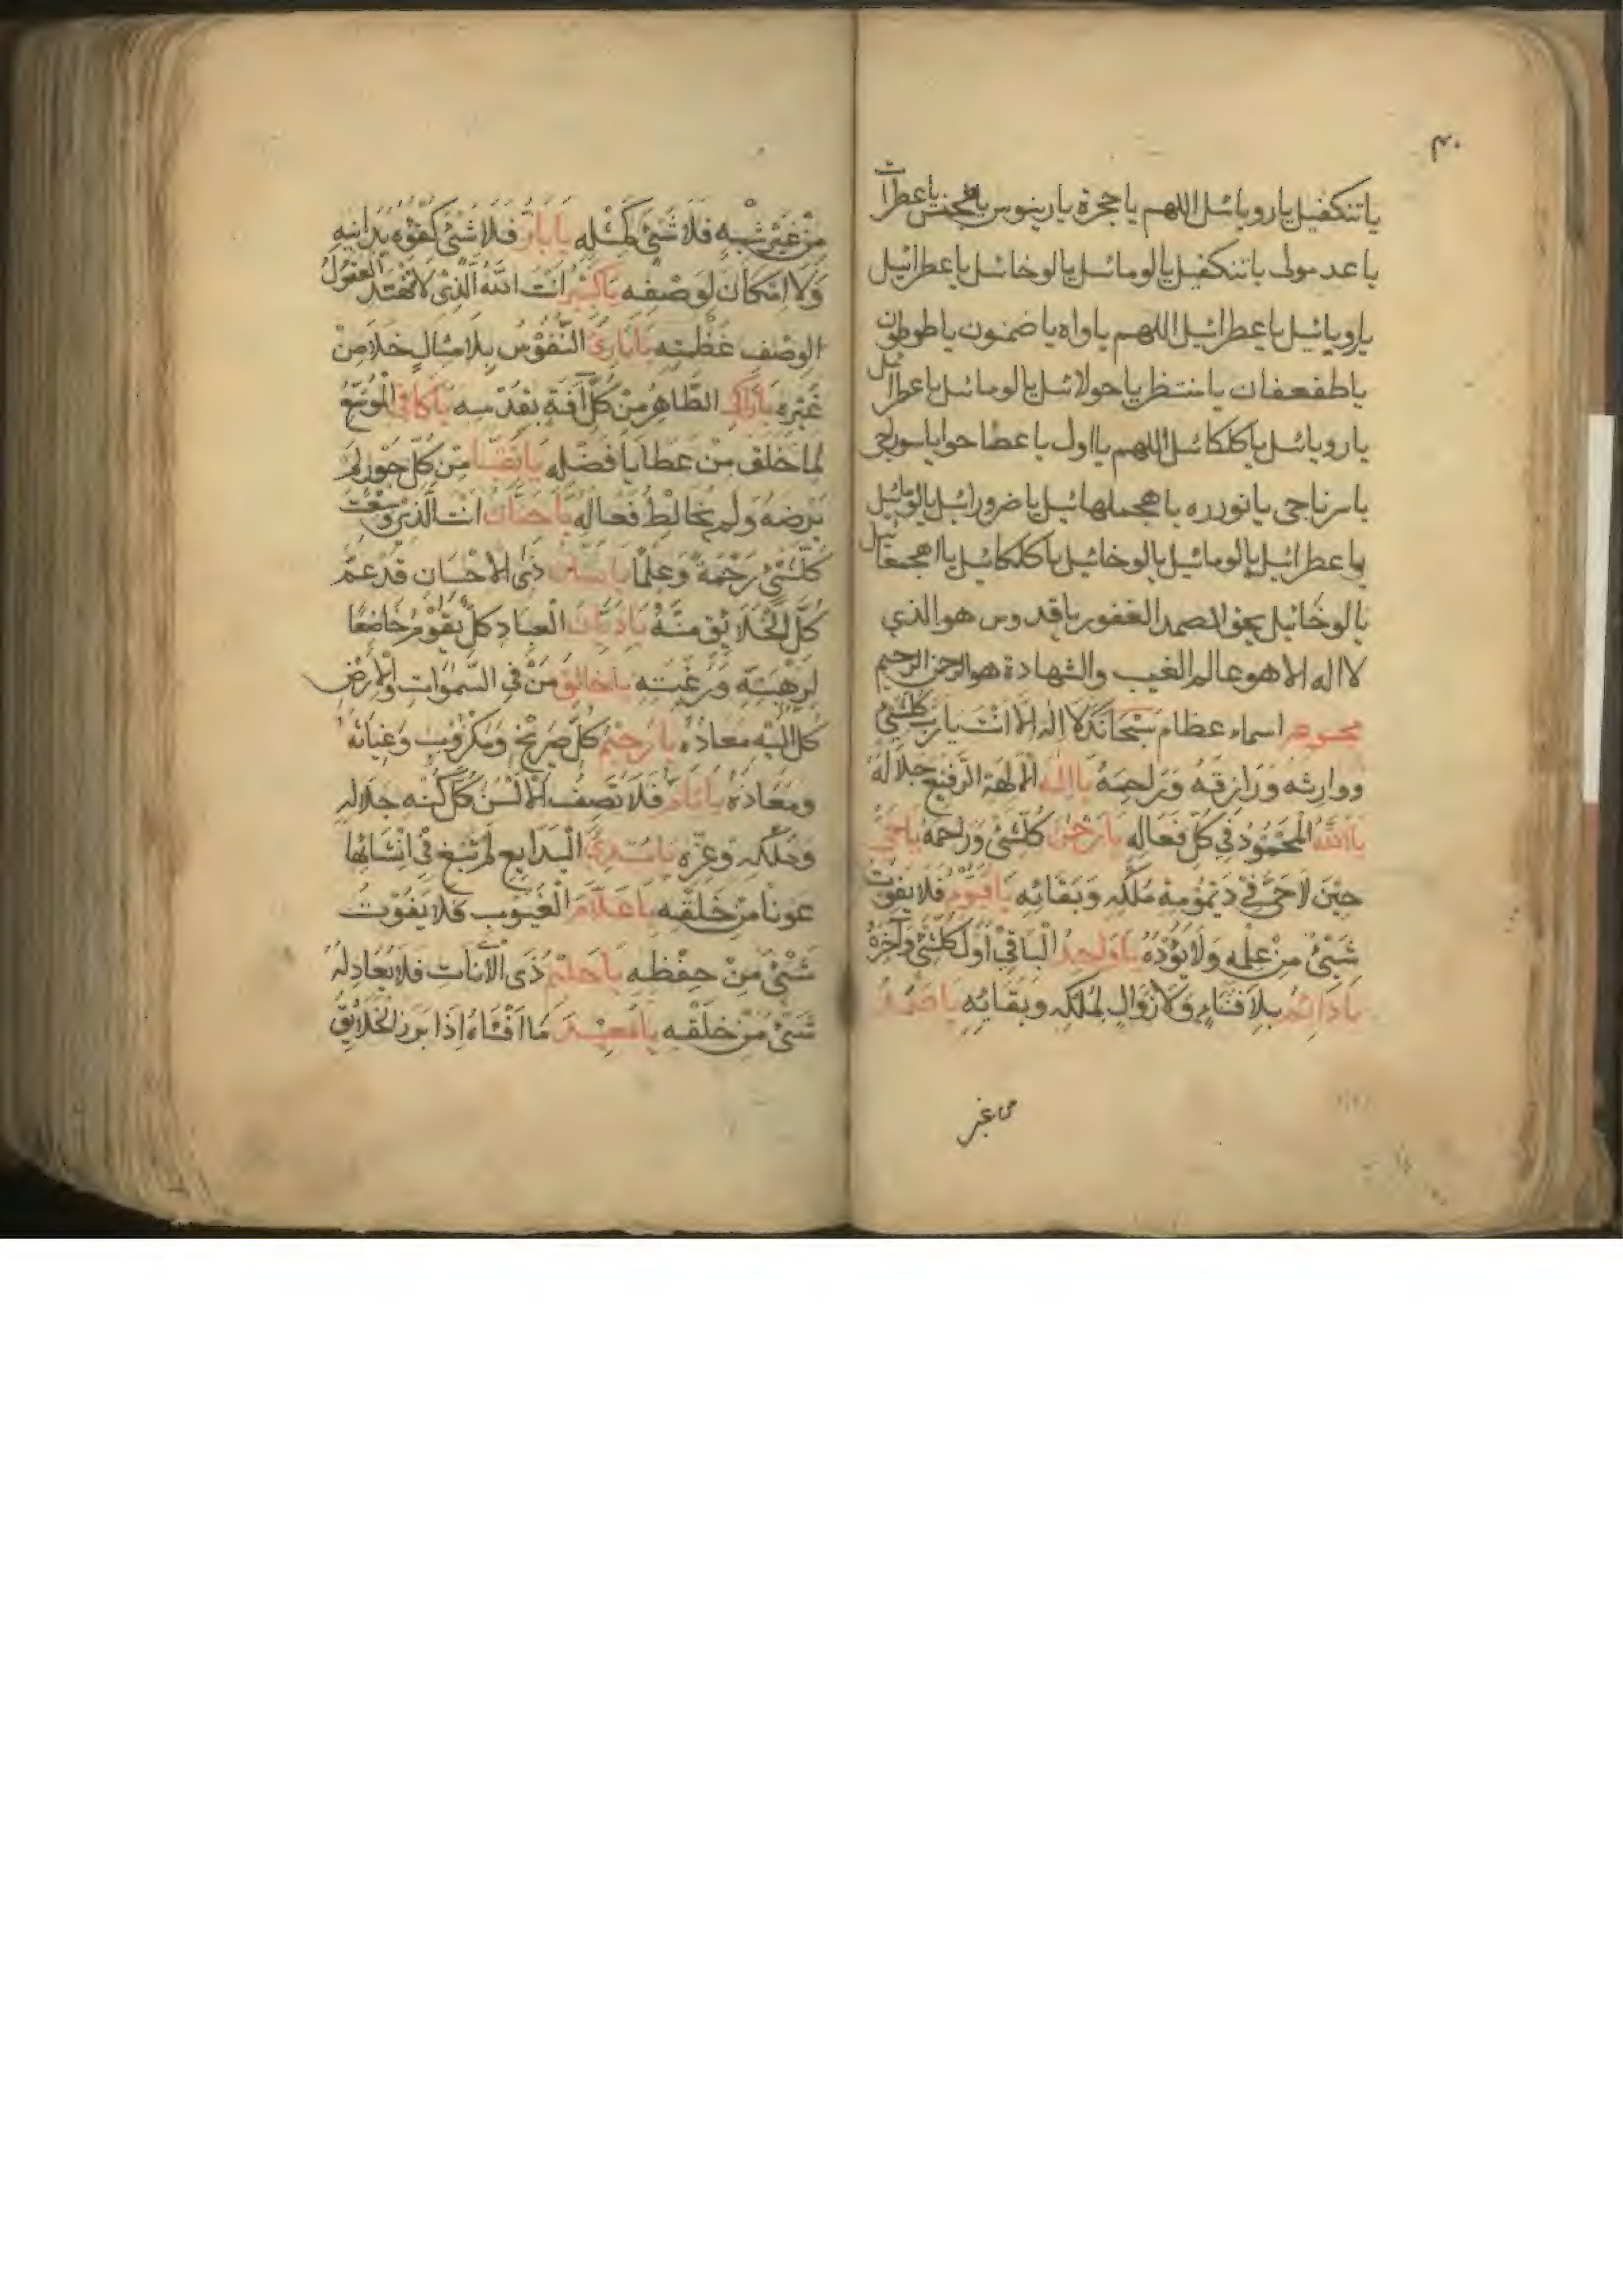 ٣٠
ياتنكفيل يارويائيل اللهم ياحجرة يارينوس ياعطرات
ياعدمولى ياتنكفيل يالومائيل يالوخائيل ياعطرائيل
يارويائيل ياعطرائيل اللهم ياواه ياضمنون ياطوطون
ياطفعفان يامنتظر ياحولائيل يالومائيل ياعطرائيل
يارويائيل ياكلكائيل اللهم يااول ياعطا حوا ياسورجى
ياسرناجى يانورره ياهجملهائيل ياضرورائيل يالومائيل
ياعطرائيل يالومائيل يالوخائيل ياكلكائيل يااهجمعائيل
يالوخائيل بحق الصمد الغفور ياقدوس هو الذي
لااله الا هو عالم الغيب والشهادة هو الرحمن الرحيم
اسماء عظام سُبْحَانَكَ لَا اِلٰهَ اِلَّا اَنْتَ يَارَبَّ كُلِّشَئٍ
ووارِثه وَرَازِقَهُ وَرَاحِمَهُ يااِلٰهَ الْالِهَةِ الرَّفِيعُ جَلَالُهُ
يااللّٰهُ الْمَحْمُوْدُ فِي كُلِّ فَعَالِهِ يَارَحْمٰنَ كُلِّشَئٍ وَرَاحِمَهُ يَاحَيُّ
حِيْنَ لَاحَيَّ فِيْ دَيْمُوْمِةِ مُلْكِهِ وَبَقَائِهِ يَاقَيُّوْمُ فَلَا يَفُوْتُ
شَيْئٌ مِنْ عِلْمِهِ وَلَا يَؤُدُهُ يَاوَاحِدُ الْبَاقِيْ اَوَّلَ كُلِّشَئٍ وَآخِرَهُ
يَادَائِمُ بِلَا فَنَاءٍ وَلَا زَوَالِ لِمُلْكِهِ وَبَقَائِهِ يَاصَمَدُ
من غير
مِنْ غَيْرِ شِبْهٍ فَلَا شَيْئَ كَمِثْلِهِ يَابَارُّ فَلَا شَيْئَ كُفْوُهُ يُدَانِيهِ
وَلَا اِمْكَانَ لِوَصْفِهِ يَاكَبِيْرُ اَنْتَ اللّٰهُ الَّذِيْ لَا تَهْتَدِ الْعُقُوْلُ
الوصْفِ عَظْمَتِهِ يَابَارِئَ النُّفُوْسِ بِلَا مِثَالٍ خَلَا مِنْ
غَيْرِهِ يَازَاكِي الطَّاهِرُ مِنْ كُلِّ آفَةٍ بِقُدْسِهِ يَاكَافِي الْمُوَسِّعُ
لِمَا خَلَقَ مِنْ عَطَايَا فَضْلِهِ يَانَقِيًّا مِنْ كُلِّ جَوْرٍ لَمْ
يَرْضَهُ وَلَمْ يُخَالِطْ فَعَالَهُ يَاحَنَّانُ اَنْتَ الَّذِيْ وَسِعْتَ
كُلَّشَئٍ رَحْمَةً وَعِلْمًا يَامَنَّانُ ذَى الْاحْسَانِ قَدْ عَمَّ
كُلَّ الْخَلَايِقِ مَنُّهُ يَادَيَّانَ الْعِبَادِ كُلٌّ يَقُوْمُ خَاضِعًا
لِرَهْبَتِهِ وَرَغْبَتِهِ يَاخَالِقَ مَنْ فِي السَّمٰوَاتِ وَالْاَرْضِ
كُلٌّ اِلَيْهِ مَعَادُهُ يَارَحِيْمَ كُلِّ صَرِيْخٍ وَمَكْرُوْبٍ وَغِيَاثَهُ
وَمَعَاذَهُ يَاتَامُّ فَلَا تَصِفُ الْاَلْسُنُ كُلَّ كُنْهِ جَلَالِهِ
وَمُلْكِهِ وَعِزِّهِ يَامُبْدِئَ الْبَدَايِعِ لَمْ تَبْغِ فِيْ اِنْشَائِهَا
عَوْنًا مِنْ خَلْقِهِ يَاعَلَّامَ الْغُيُوْبِ فَلَا يَفُوْتُ
شَيْئٌ مِنْ حِفْظِهِ يَاحَلِيْمُ ذَى الْانَاتِ فَلَا يُعَادِلُهُ
شَيْئٌ مِنْ خَلْقِهِ يَامُعِيْدَ مَا اَفْنَاهُ اِذَا بَرَزَ الْخَلَايِقُ